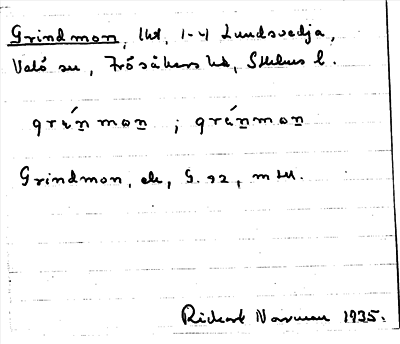 Grindmon, lht, 1-4 Lundsvedja,
Valö sn, Frösåkers hd, Sthlms l.
grínmon ; grénmon
Grindmon, ek, G. 92, m
Rickard 1935.